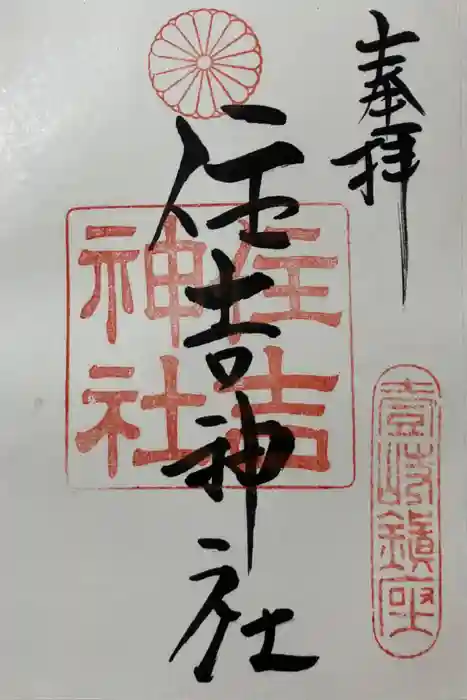 奉拝
壱岐鎮座
住吉神社
住吉神社